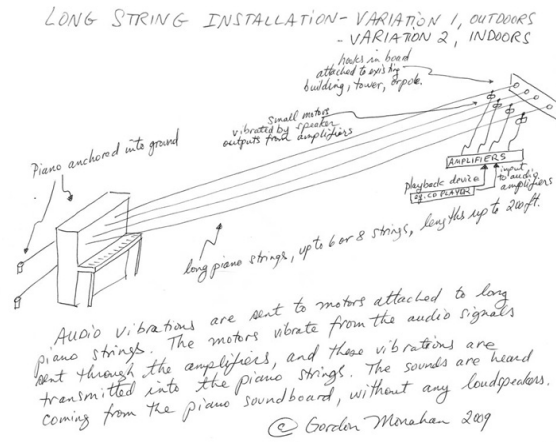 LONG STRING INSTALLATION - VARIATION 1, OUTDOORS
- VARIATION 2, INDOORS
hooks in board
attached to existing
building, tower, or pole.
small motors
vibrated by speaker
outputs from amplifiers
Piano anchored into ground
AMPLIFIERS
playback device
eg. CD PLAYER
input
to audio
amplifiers
long piano strings, up to 6 or 8 strings, lengths up to 200ft.
Audio vibrations are sent to motors attached to long
piano strings. The motors vibrate from the audio signals
sent through the amplifiers, and these vibrations are
transmitted into the piano strings. The sounds are heard
coming from the piano soundboard, without any loudspeakers.
© Gordon Monahan 2009